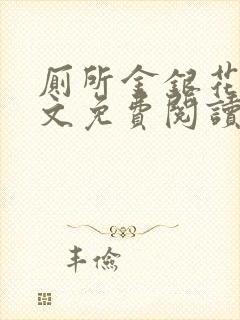 厕所金银花
文免费阅读
丰俭